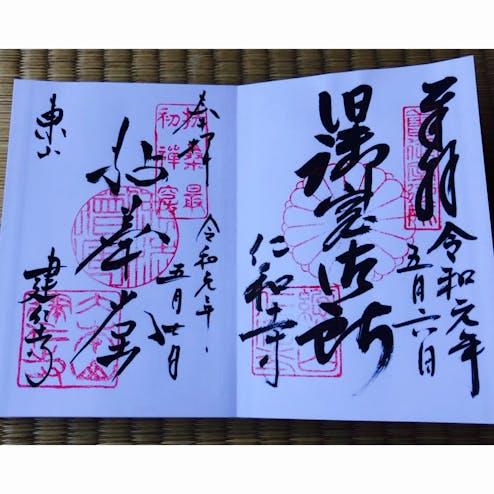 奉拝
令和元年
五月六日
旧御室御所
仁和寺
奉拝
扶桑最
初禅窟
令和元年
五月廿日
拈華堂
東山
建仁寺